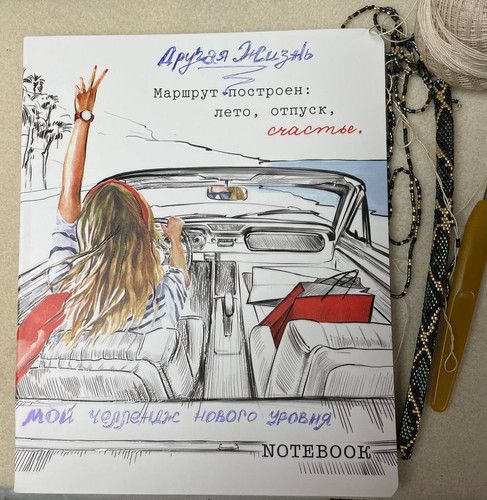 Другая Жизнь
Маршрут построен:
лето, отпуск,
счастье.
МОЙ ЧЕЛЛЕНДЖ НОВОГО УРОВНЯ
NOTEBOOK